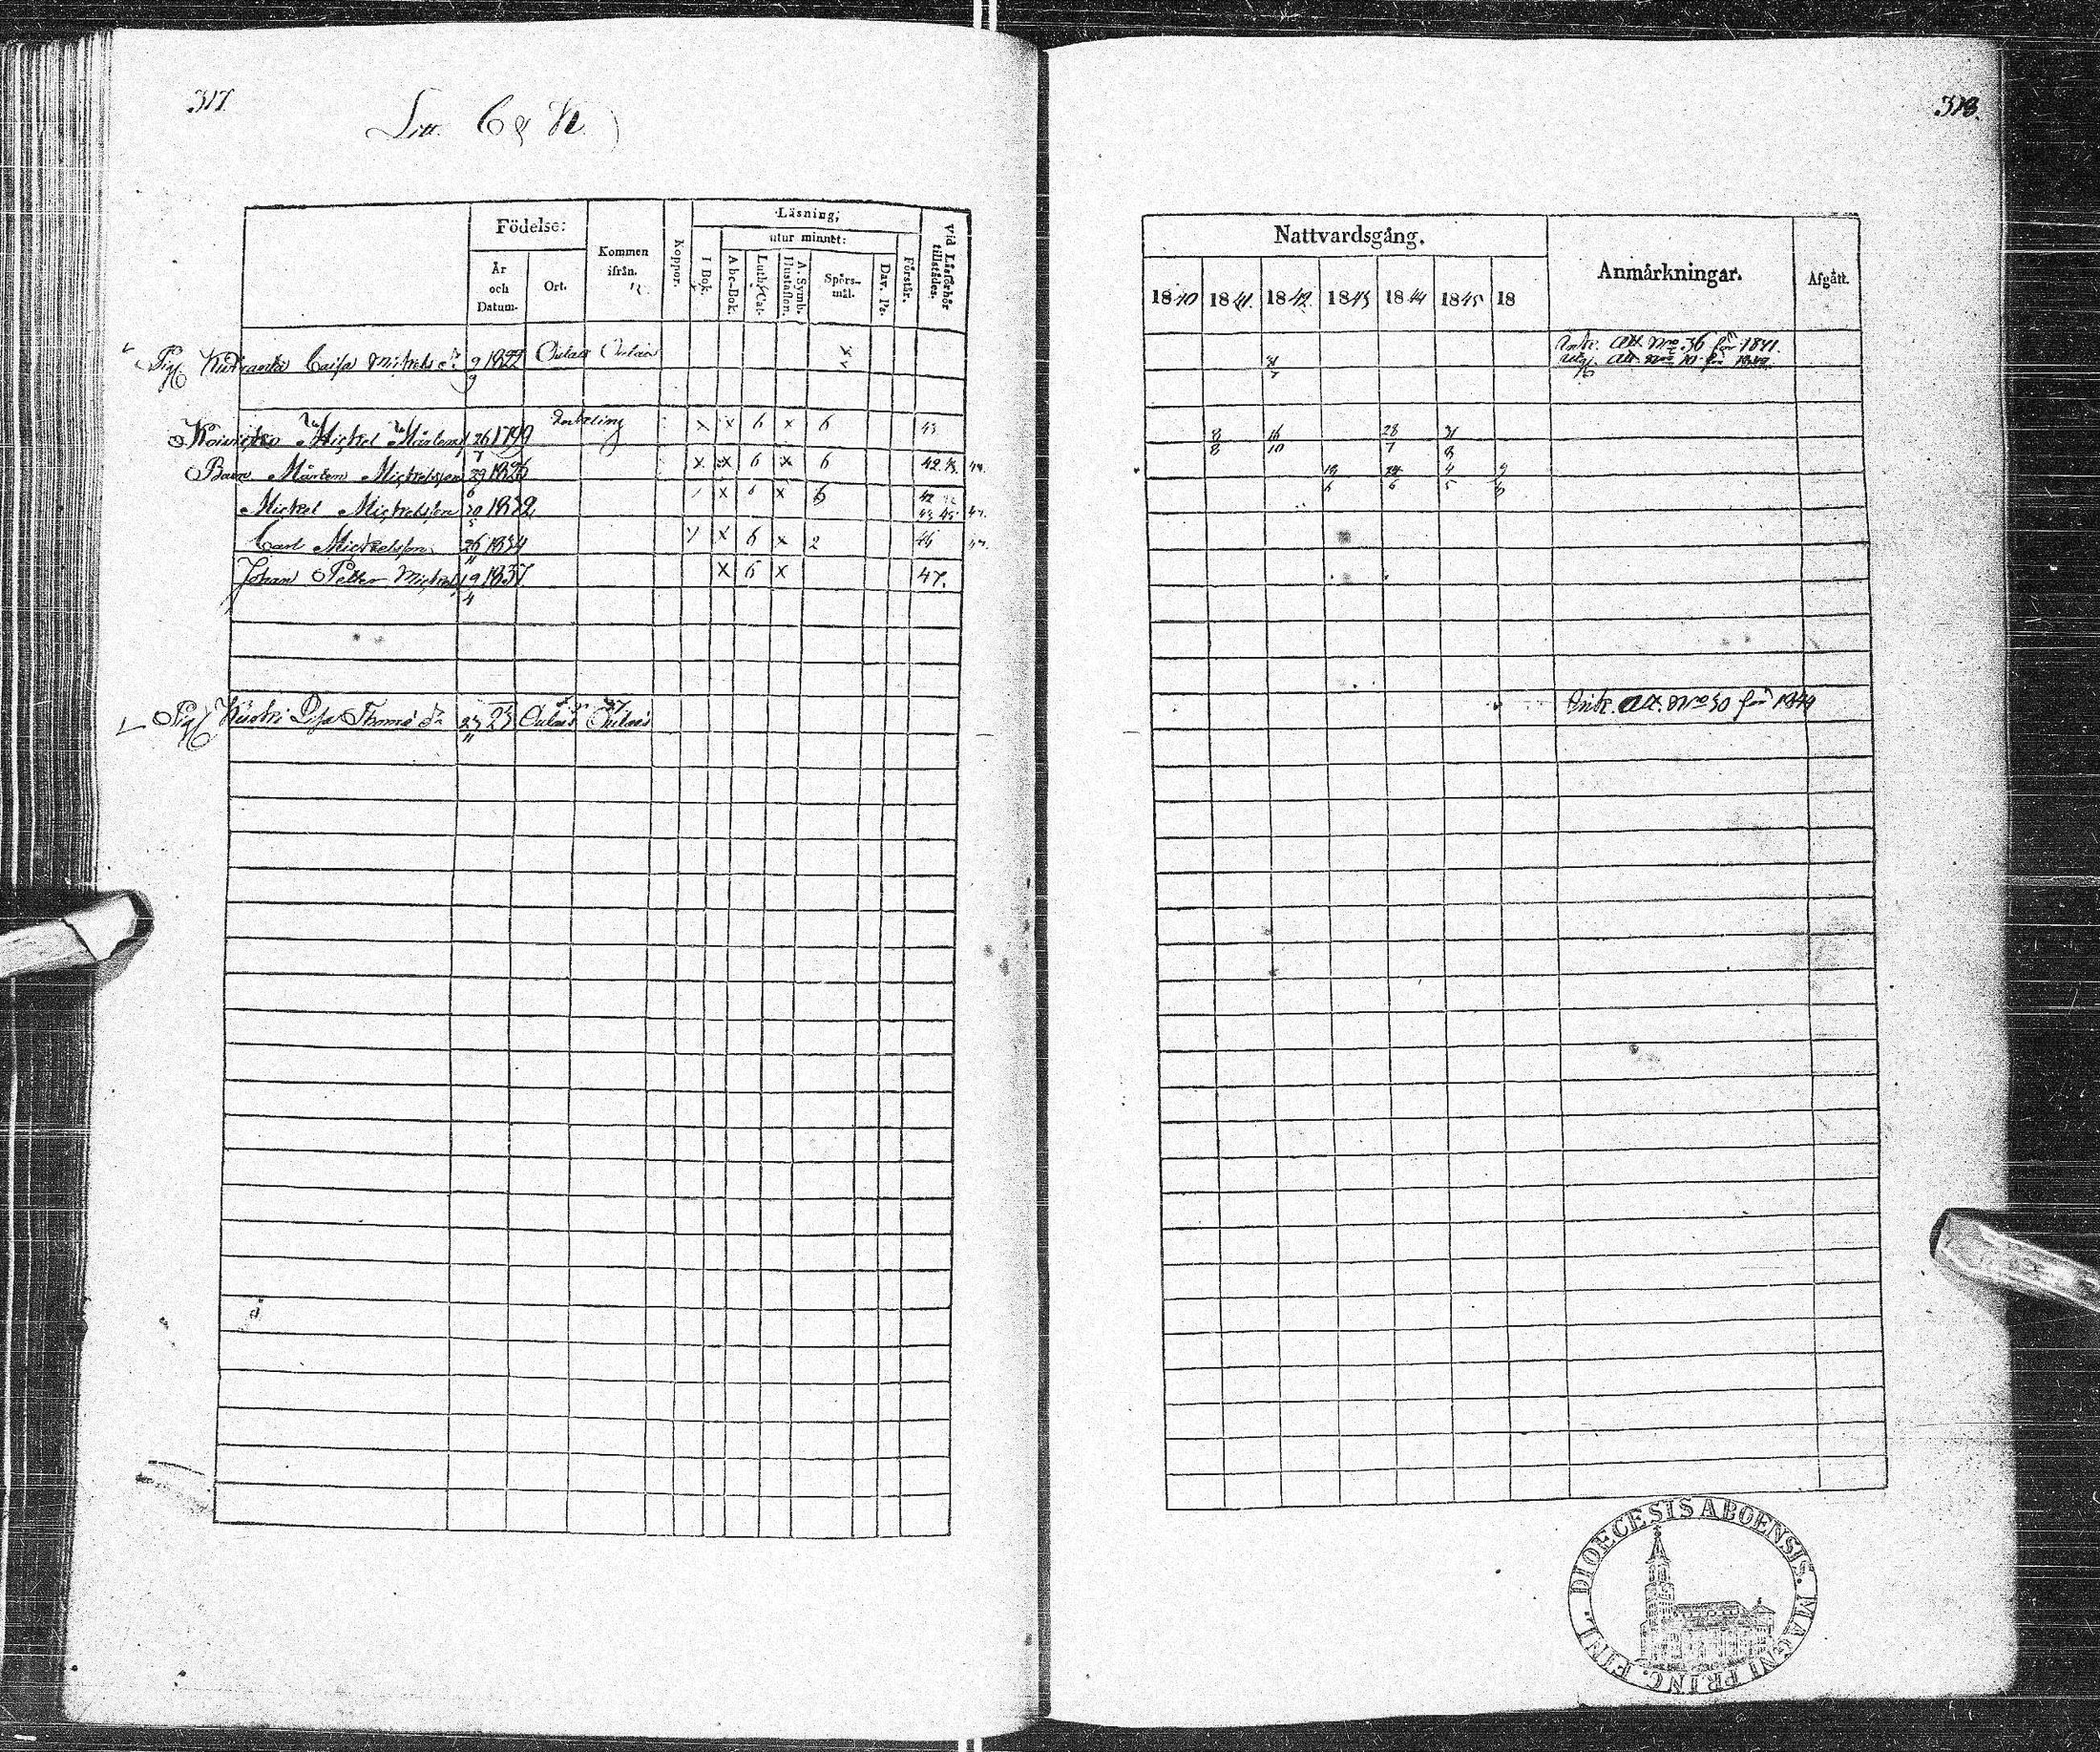 317.
Litt. C & K
Födelse:
År och Datum.
Ort.
Kommen ifrån.
Koppor.
Läsning;
I Bok.
utur minnet:
Abc-Bok.
Luth. Cat.
A. Symb. Hustaflan.
Spörs-mål.
Dav. Ps.
Förstår.
Vid Läsförhör tillstädes.
Pig. Caisa Mickels dr 9/9 1822 Oulais Oulais x
Mickel Mårtens 26/7 1799 Enkeling x x 6 x 6 43
Barn Mårten Mickelsson 29/6 1826 x x 6 x 6 42. 43. 44.
Mickel Mickelsson 20/5 1832 x 6 x 6 42 43 45 47.
Carl Mickelsson 26/11 1834 x 6 x 2 46 47.
Johan Petter Mickels 19/4 1837 x 6 x 47.
Pig Lisa Thoma dr 23/11 23 Oulais Oulais
318.
Nattvardsgång.
Anmärkningar.
Afgått.
1840 1841 1842 1843 1844 1845 18
Att. Nro 36 för 1841.
Utgj. Att. Nro 10 för
8/8 16/10 28/7 31/8
18/6 24/6 4/5 9/8
Ink. Att. Nro 30 för 1844
DIOECESIS ABOENSIS. MAGNI PRINC. FINL.